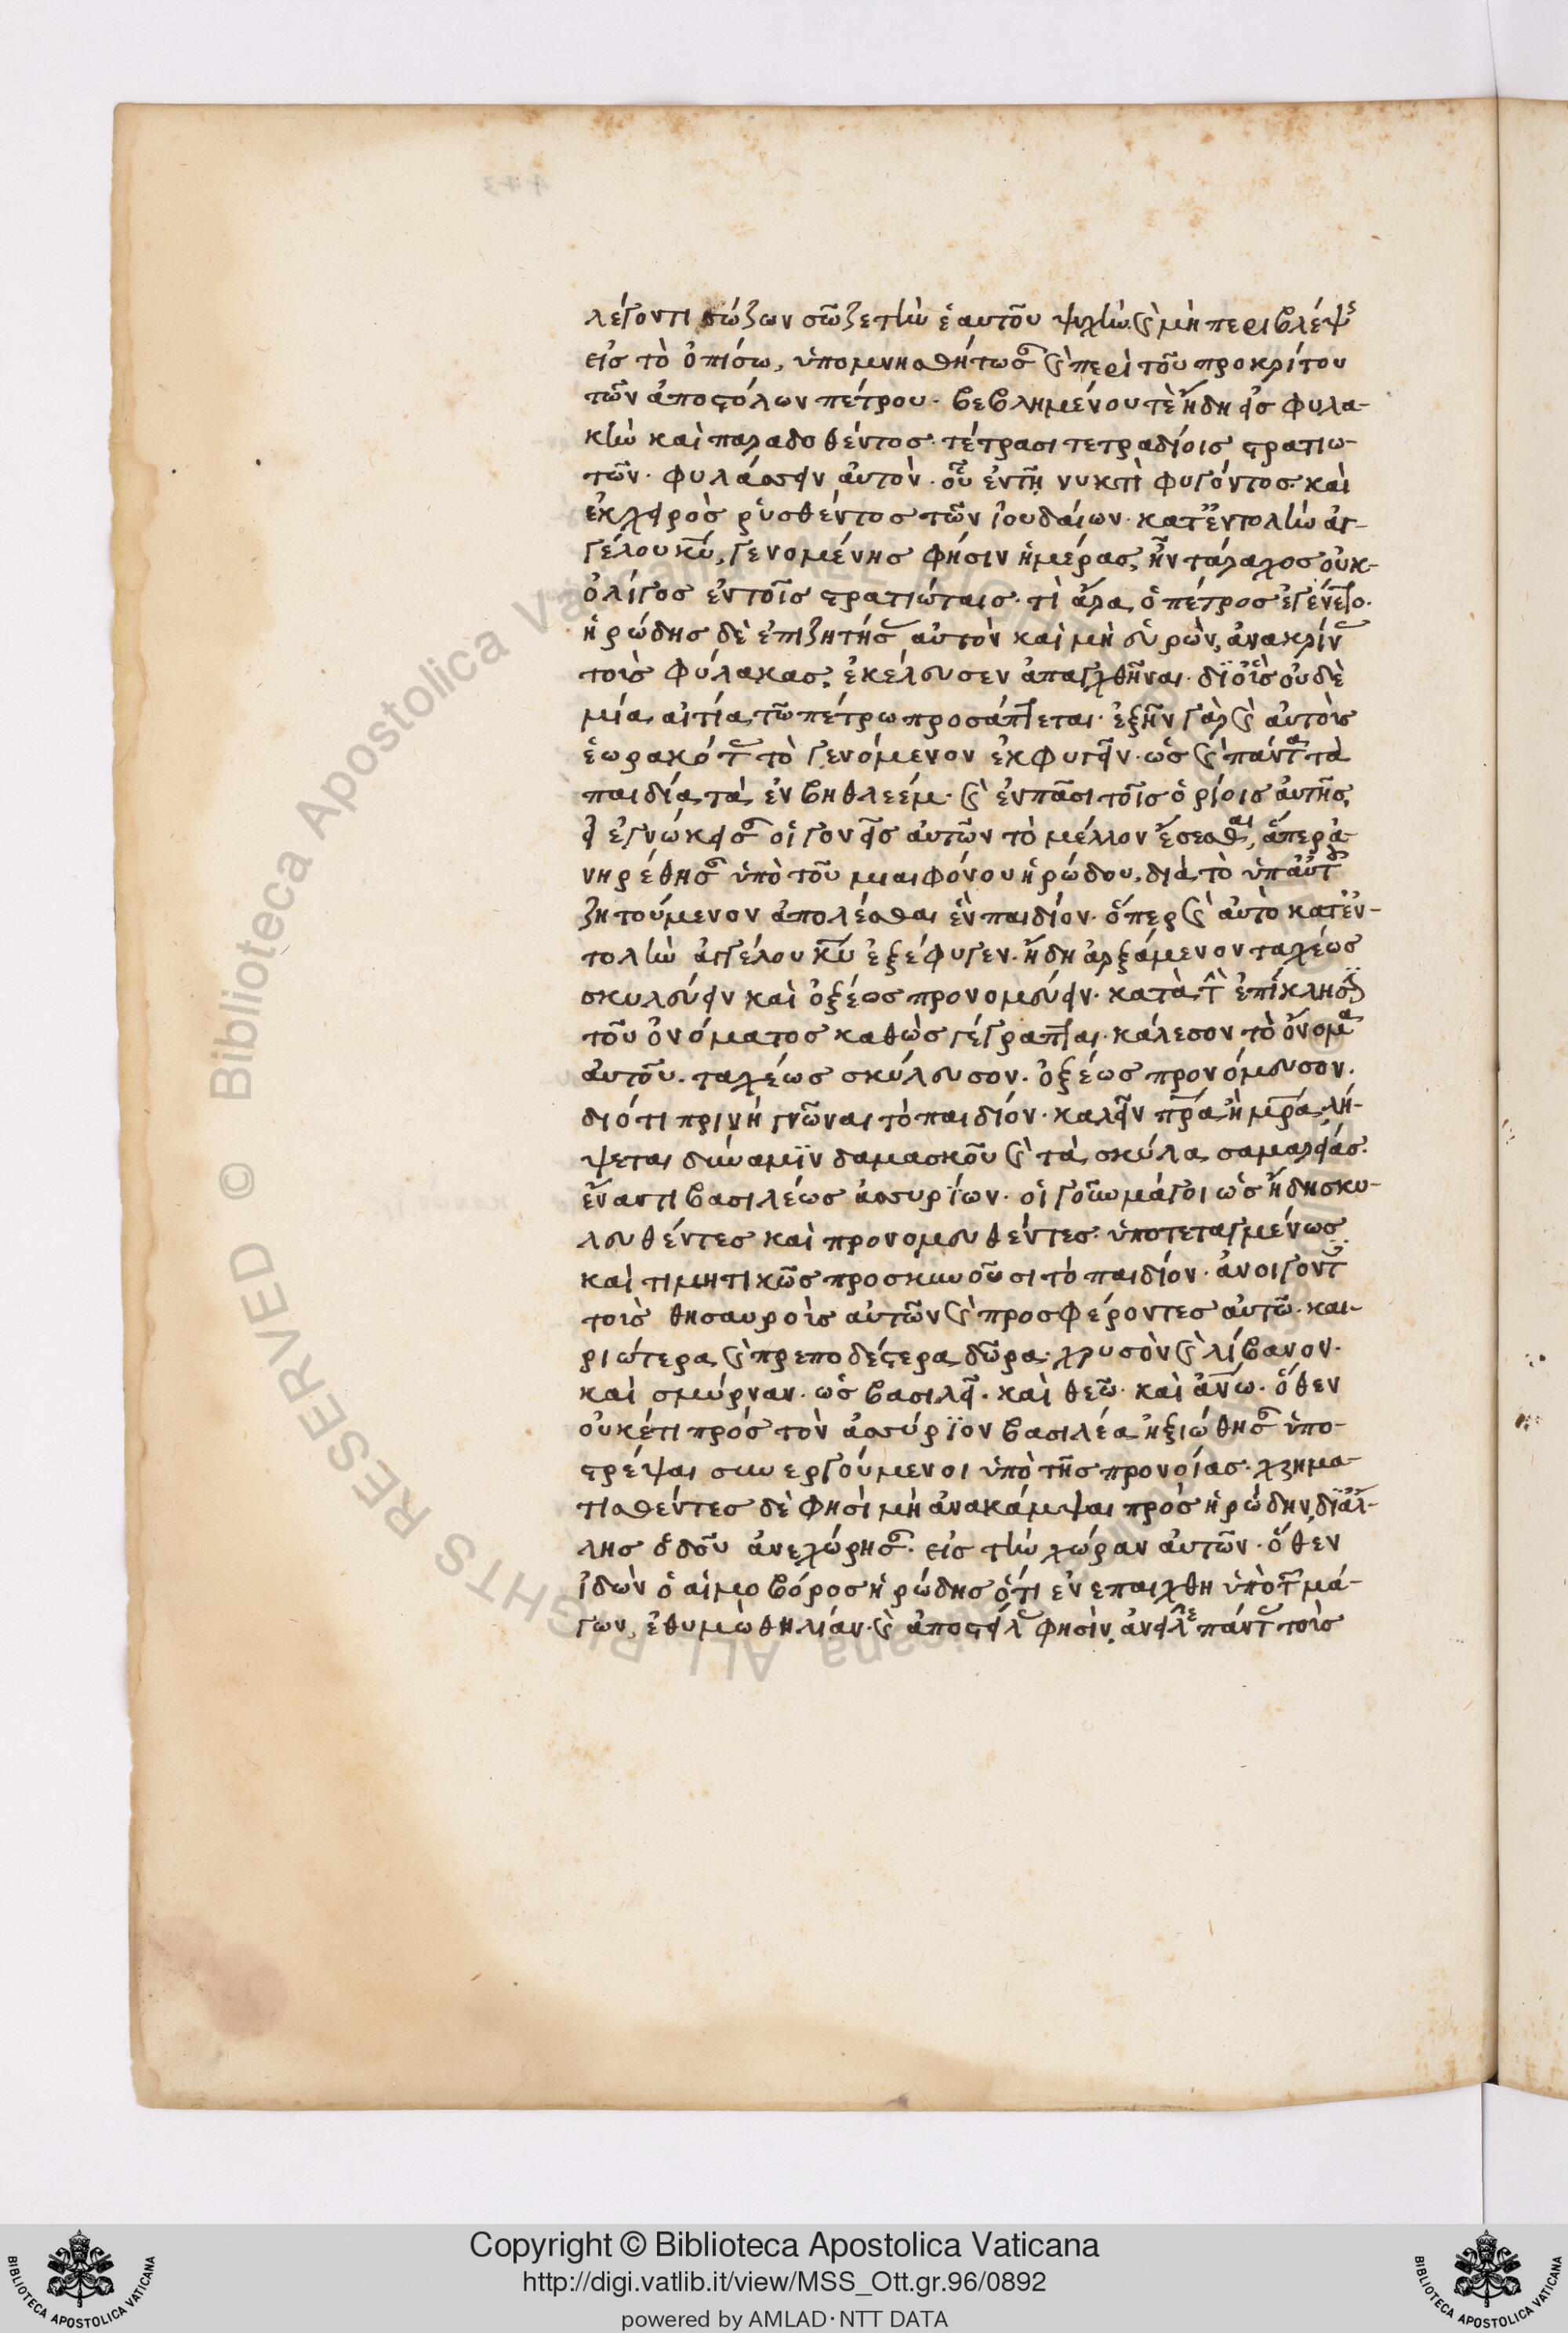 λέγοντι σώζων σῶζε τὴν ἑαυτοῦ ψυχὴν. καὶ μὴ περιβλέψῃς
εἰς τὸ ὀπίσω, ὑπομνησθήτωσαν καὶ περὶ τοῦ προκρίτου
τῶν ἀποστόλων πέτρου. βεβλημένου τὲ ἤδη εἰς φυλα-
κὴν καὶ παραδοθέντος. τέτρασι τετραδίοις στρατιω-
τῶν. φυλάσσειν αὐτὸν. οὗ ἐν τῇ νυκτὶ φυγόντος. καὶ
ἐκ χειρὸς ῥυσθέντος τῶν ἰουδαίων. κατ' ἐντολὴν ἀγ-
γέλου κυ, γενομένης φησιν ἡμέρας, ἦν τάραχος οὐκ-
ὀλίγος ἐν τοῖς στρατιώταις. τί ἄρα ὁ πέτρος ἐγένετο.
ἡρώδης δὲ ἐπιζητήσας αὐτὸν καὶ μὴ εὑρὼν, ἀνακρίνας
τοὺς φύλακας, ἐκέλευσεν ἀπαχθῆναι. δι' οἷς οὐδὲ
μία αἰτία τῶ πέτρω προσάπτεται. ἐξῆν γὰρ καὶ αὐτοὺς
ἑωρακότας τὸ γενόμενον ἐκφυγεῖν. ὡς καὶ πάντα τὰ
παιδία τὰ ἐν βηθλεέμ. καὶ ἐν πᾶσι τοῖς ὁρίοις αὐτῆς,
εἰ ἐγνώκεισαν οἱ γονεῖς αὐτῶν τὸ μέλλον ἔσεσθαι, ἅπερ ἀ-
νηρέθησαν ὑπὸ τοῦ μιαιφόνου ἡρώδου, διὰ τὸ ὑπ' αὐτοῦ
ζητούμενον ἀπολέσθαι ἓν παιδίον. ὅπερ καὶ αὐτὸ κατ' ἐν-
τολὴν ἀγγέλου κυ ἐξέφυγεν. ἤδη ἀρξάμενον ταχέως
σκυλεύειν καὶ ὀξέως προνομεύειν. κατὰ τὴν ἐπίκλησιν
τοῦ ὀνόματος καθὼς γέγραπται. κάλεσον τὸ ὄνομα
αὐτοῦ. ταχέως σκύλευσον. ὀξέως προνόμευσον.
διότι πρινὴ γνῶναι τὸ παιδίον. καλεῖν πρα ἢ μρα, λή-
ψεται δύναμϊν δαμασκοῦ καὶ τὰ σκύλα σαμαρείας.
ἔναντι βασιλέως ἀσσυρίων. οἱ γοῦν μάγοι ὡς ἤδη σκυ-
λευθέντες καὶ προνομευθέντες. ὑποτεταγμένως
καὶ τιμητικῶς προσκυνοῦσι τὸ παιδίον. ἀνοίγοντες
τοὺς θησαυροὺς αὐτῶν καὶ προσφέροντες αὐτῶ. και-
ριώτερα καὶ πρεποδέστερα δῶρα. χρυσὸν καὶ λίβανον.
καὶ σμύρναν. ὡς βασιλεῖ. καὶ θεῶ. καὶ ἀνω. ὅθεν
οὐκέτι πρὸς τὸν ἀσσύριον βασιλέα ἠξιώθησαν ὑπο-
στρέψαι συνεργούμενοι ὑπὸ τῆς προνοίας. χρημα-
τισθέντες δὲ φησὶ μὴ ἀνακάμψαι πρὸς ἡρώδην, δι' ἄλ-
λης ὁδοῦ ἀνεχώρησαν. εἰς τὴν χώραν αὐτῶν. ὅθεν
ἰδὼν ὁ αἱμοβόρος ἡρώδης ὅτι ἐνεπαίχθη ὑπὸ τῶν μά-
γων, ἐθυμώθη λίαν. καὶ ἀποστείλας φησὶν, ἀνεῖλε πάντας τοὺς
Copyright © Biblioteca Apostolica Vaticana
http://digi.vatlib.it/view/MSS_Ott.gr.96/0892
powered by AMLAD·NTT DATA